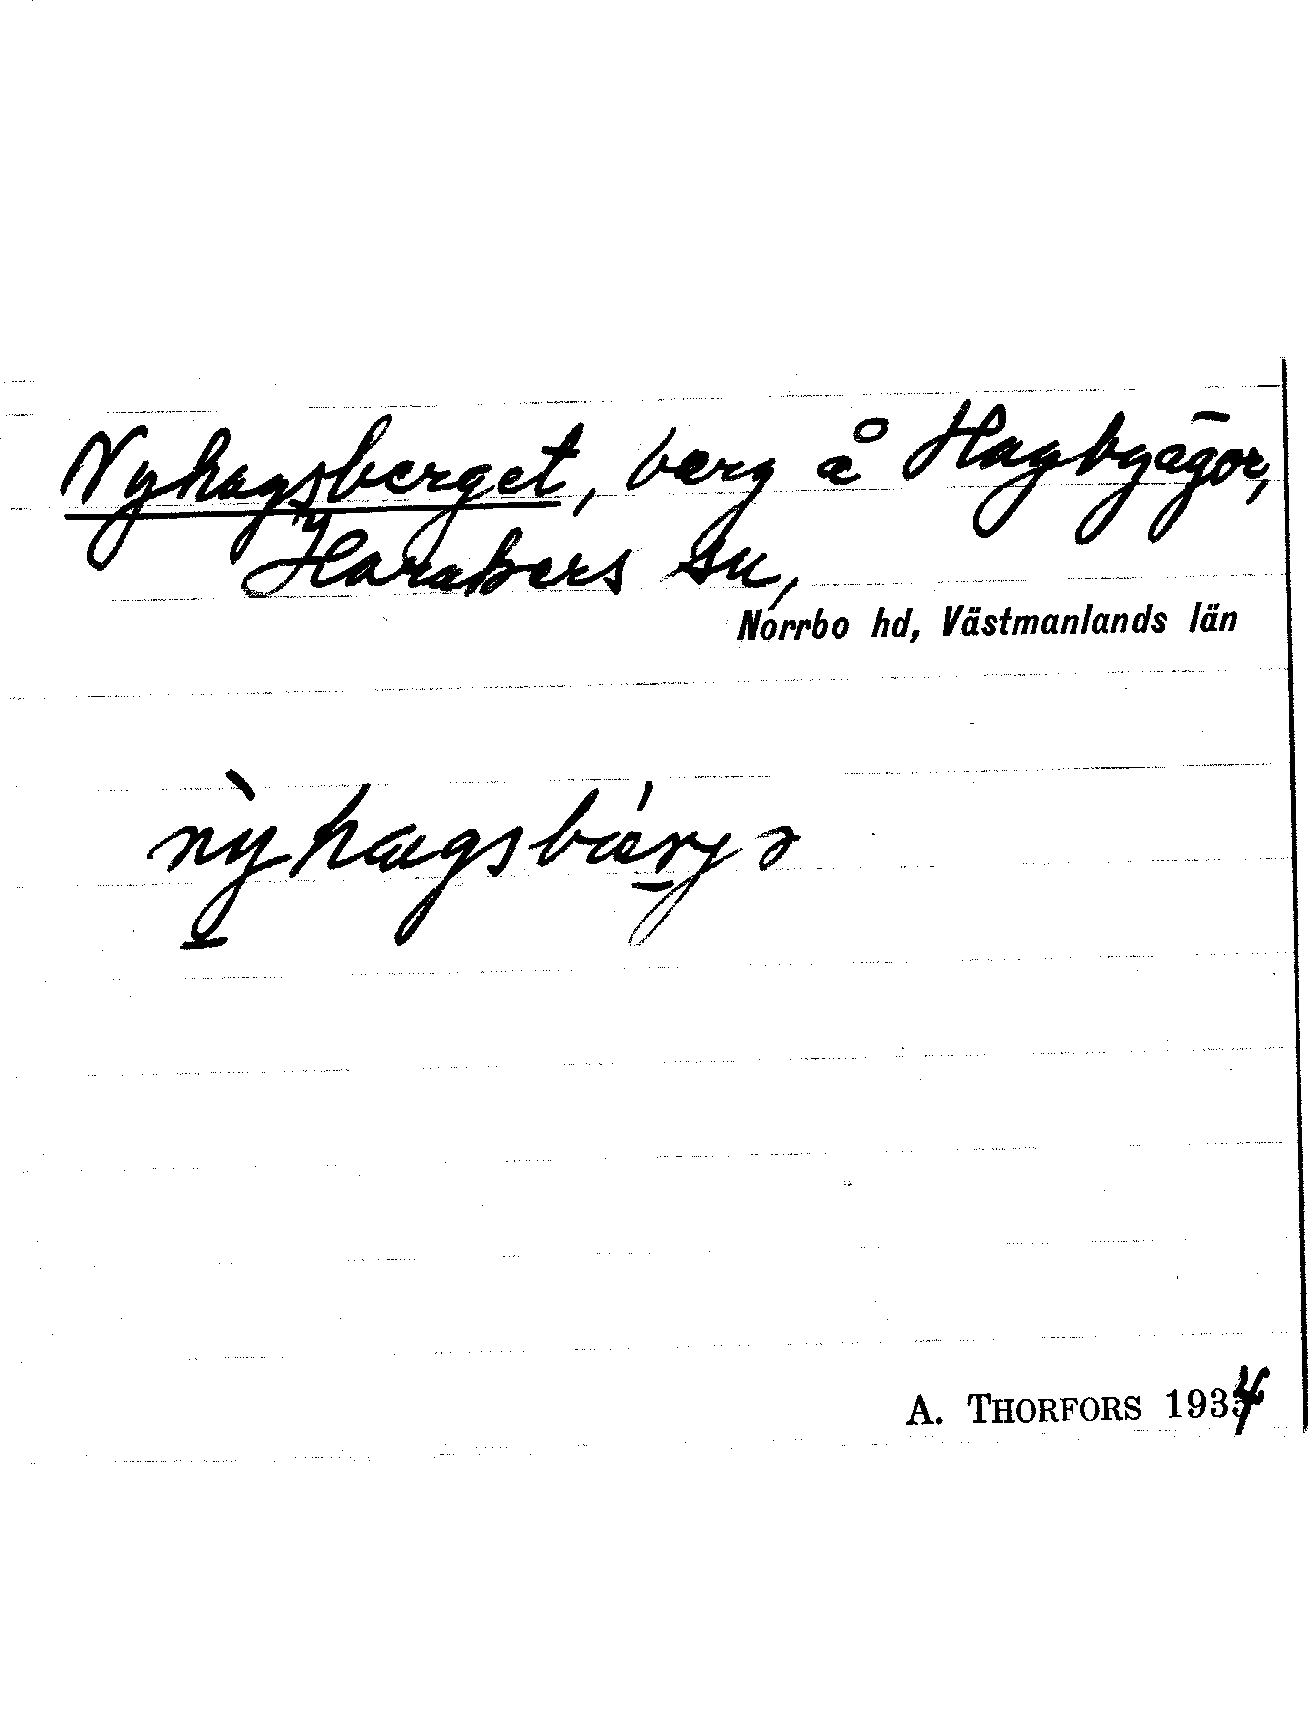 Nyhagsberget, berg å Hagbyägor,
Harakers sn,
Norrbo hd, Västmanlands län
nỳhagsbä́rjə
A. THORFORS 1934